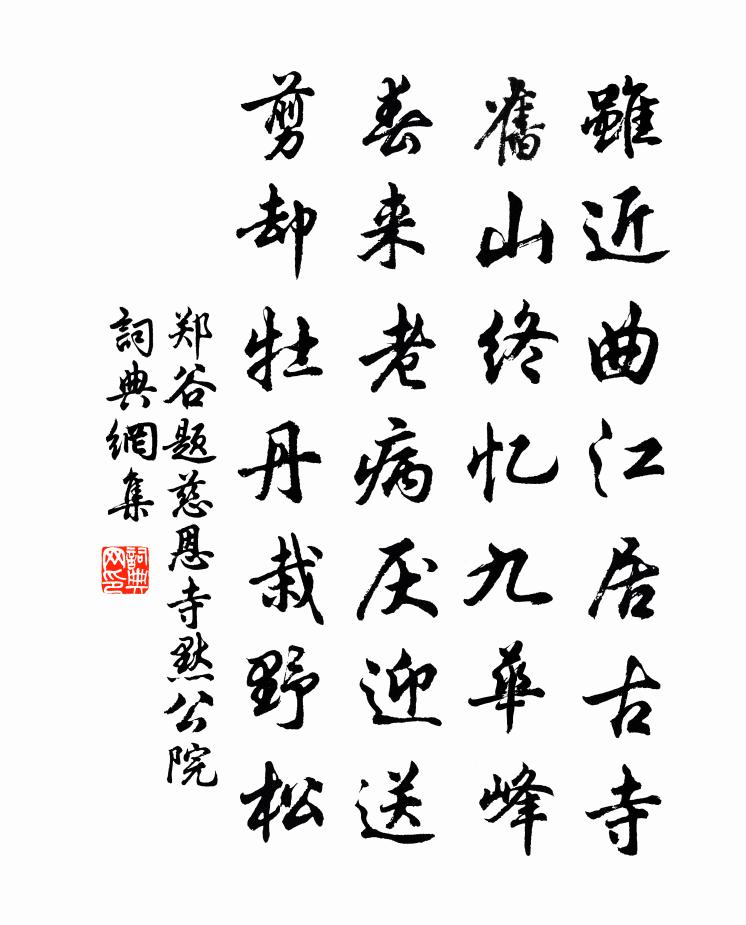 雖近曲江居古寺
舊山终忆九華峰
春来老病厌迎送
剪却牡丹栽野松
郑谷题慈恩寺默公院
詞典網集
詞典网印